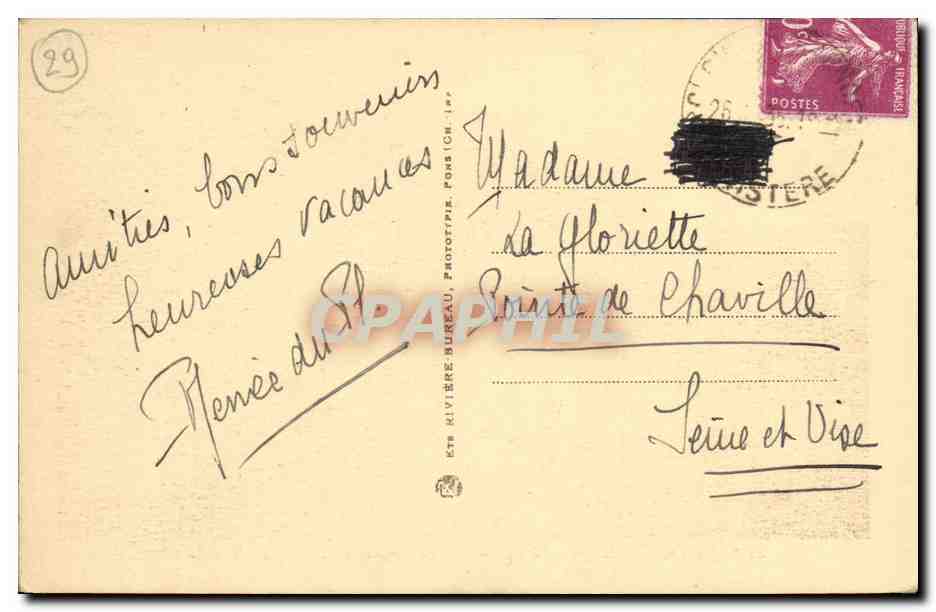 29
Amitiés, bons souvenirs
heureuses vacances
Renée du Pl
ETS RIVIÈRE-BUREAU, PROTOTYPIE, PONS (CH.-INF
RÉPUBLIQUE FRANÇAISE
POSTES
26
ISTERE
Madame
La Gloriette
Pointe de Chaville
Seine et Oise
CPAPHIL